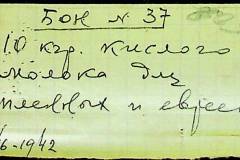 БОН № 37
10 кгр. кислого
молока для
пленных и еврее
/6-1942